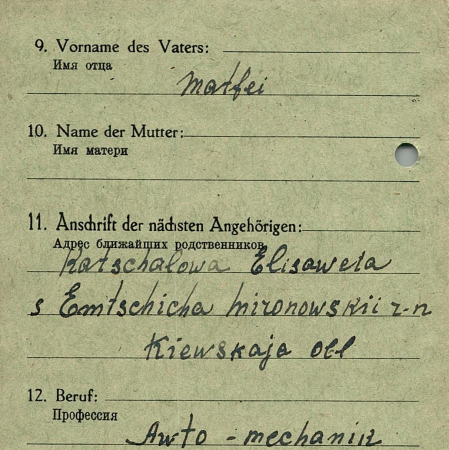 9. Vorname des Vaters:
Имя отца
Matfei
10. Name der Mutter:
Имя матери
11. Anschrift der nächsten Angehörigen:
Адрес ближайших родственников
Katschalowa Elisaweta
s Emtschicha Mironowskii r-n
Kiewskaja obl
12. Beruf:
Профессия
Awto - mechanik